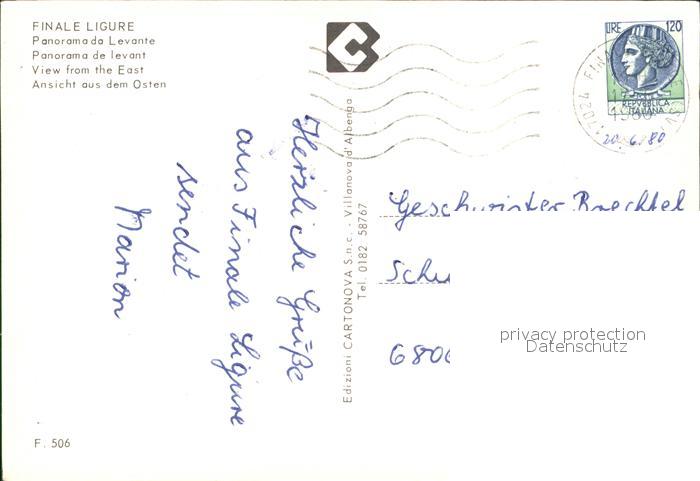 FINALE LIGURE
Panorama da Levante
Panorama de levant
View from the East
Ansicht aus dem Osten
LIRE 120
REPVBBLICA
ITALIANA
17024 FINA
1980
20.6.80
Herzliche Grüße
aus Finale Ligure
sendet
Marion
Edizioni CARTONOVA S.n.c. - Villanova d'Albenga
Tel. 0182 58767
Geschwister Brechtel
Schu
6806
privacy protection
Datenschutz
F. 506